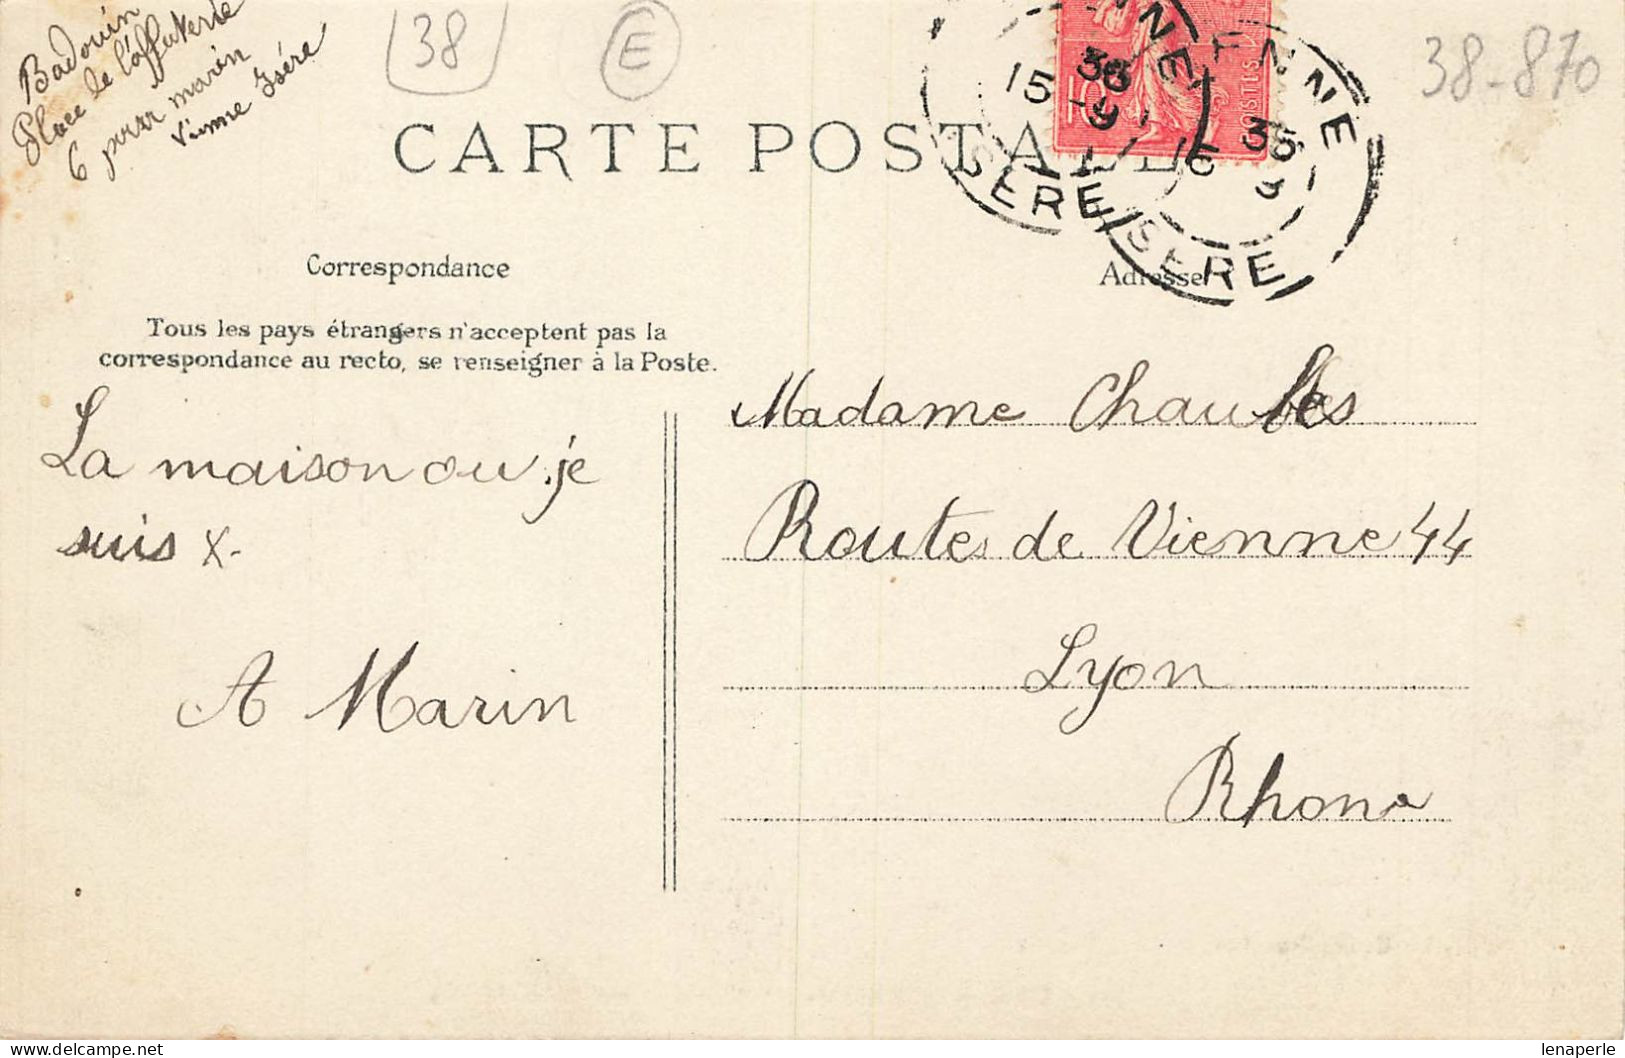 Badouin
Place de l'affuterie
6 pour marin
Vienne Isère
38
E
38-870
CARTE POSTALE
15
ISERE
ISERE
10
POSTES
Correspondance
Adresse
Tous les pays étrangers n'acceptent pas la
correspondance au recto, se renseigner à la Poste.
La maison ou je
suis X-
A Marin
Madame
Routes de Vienne 44
Lyon
Rhone
lenaperle